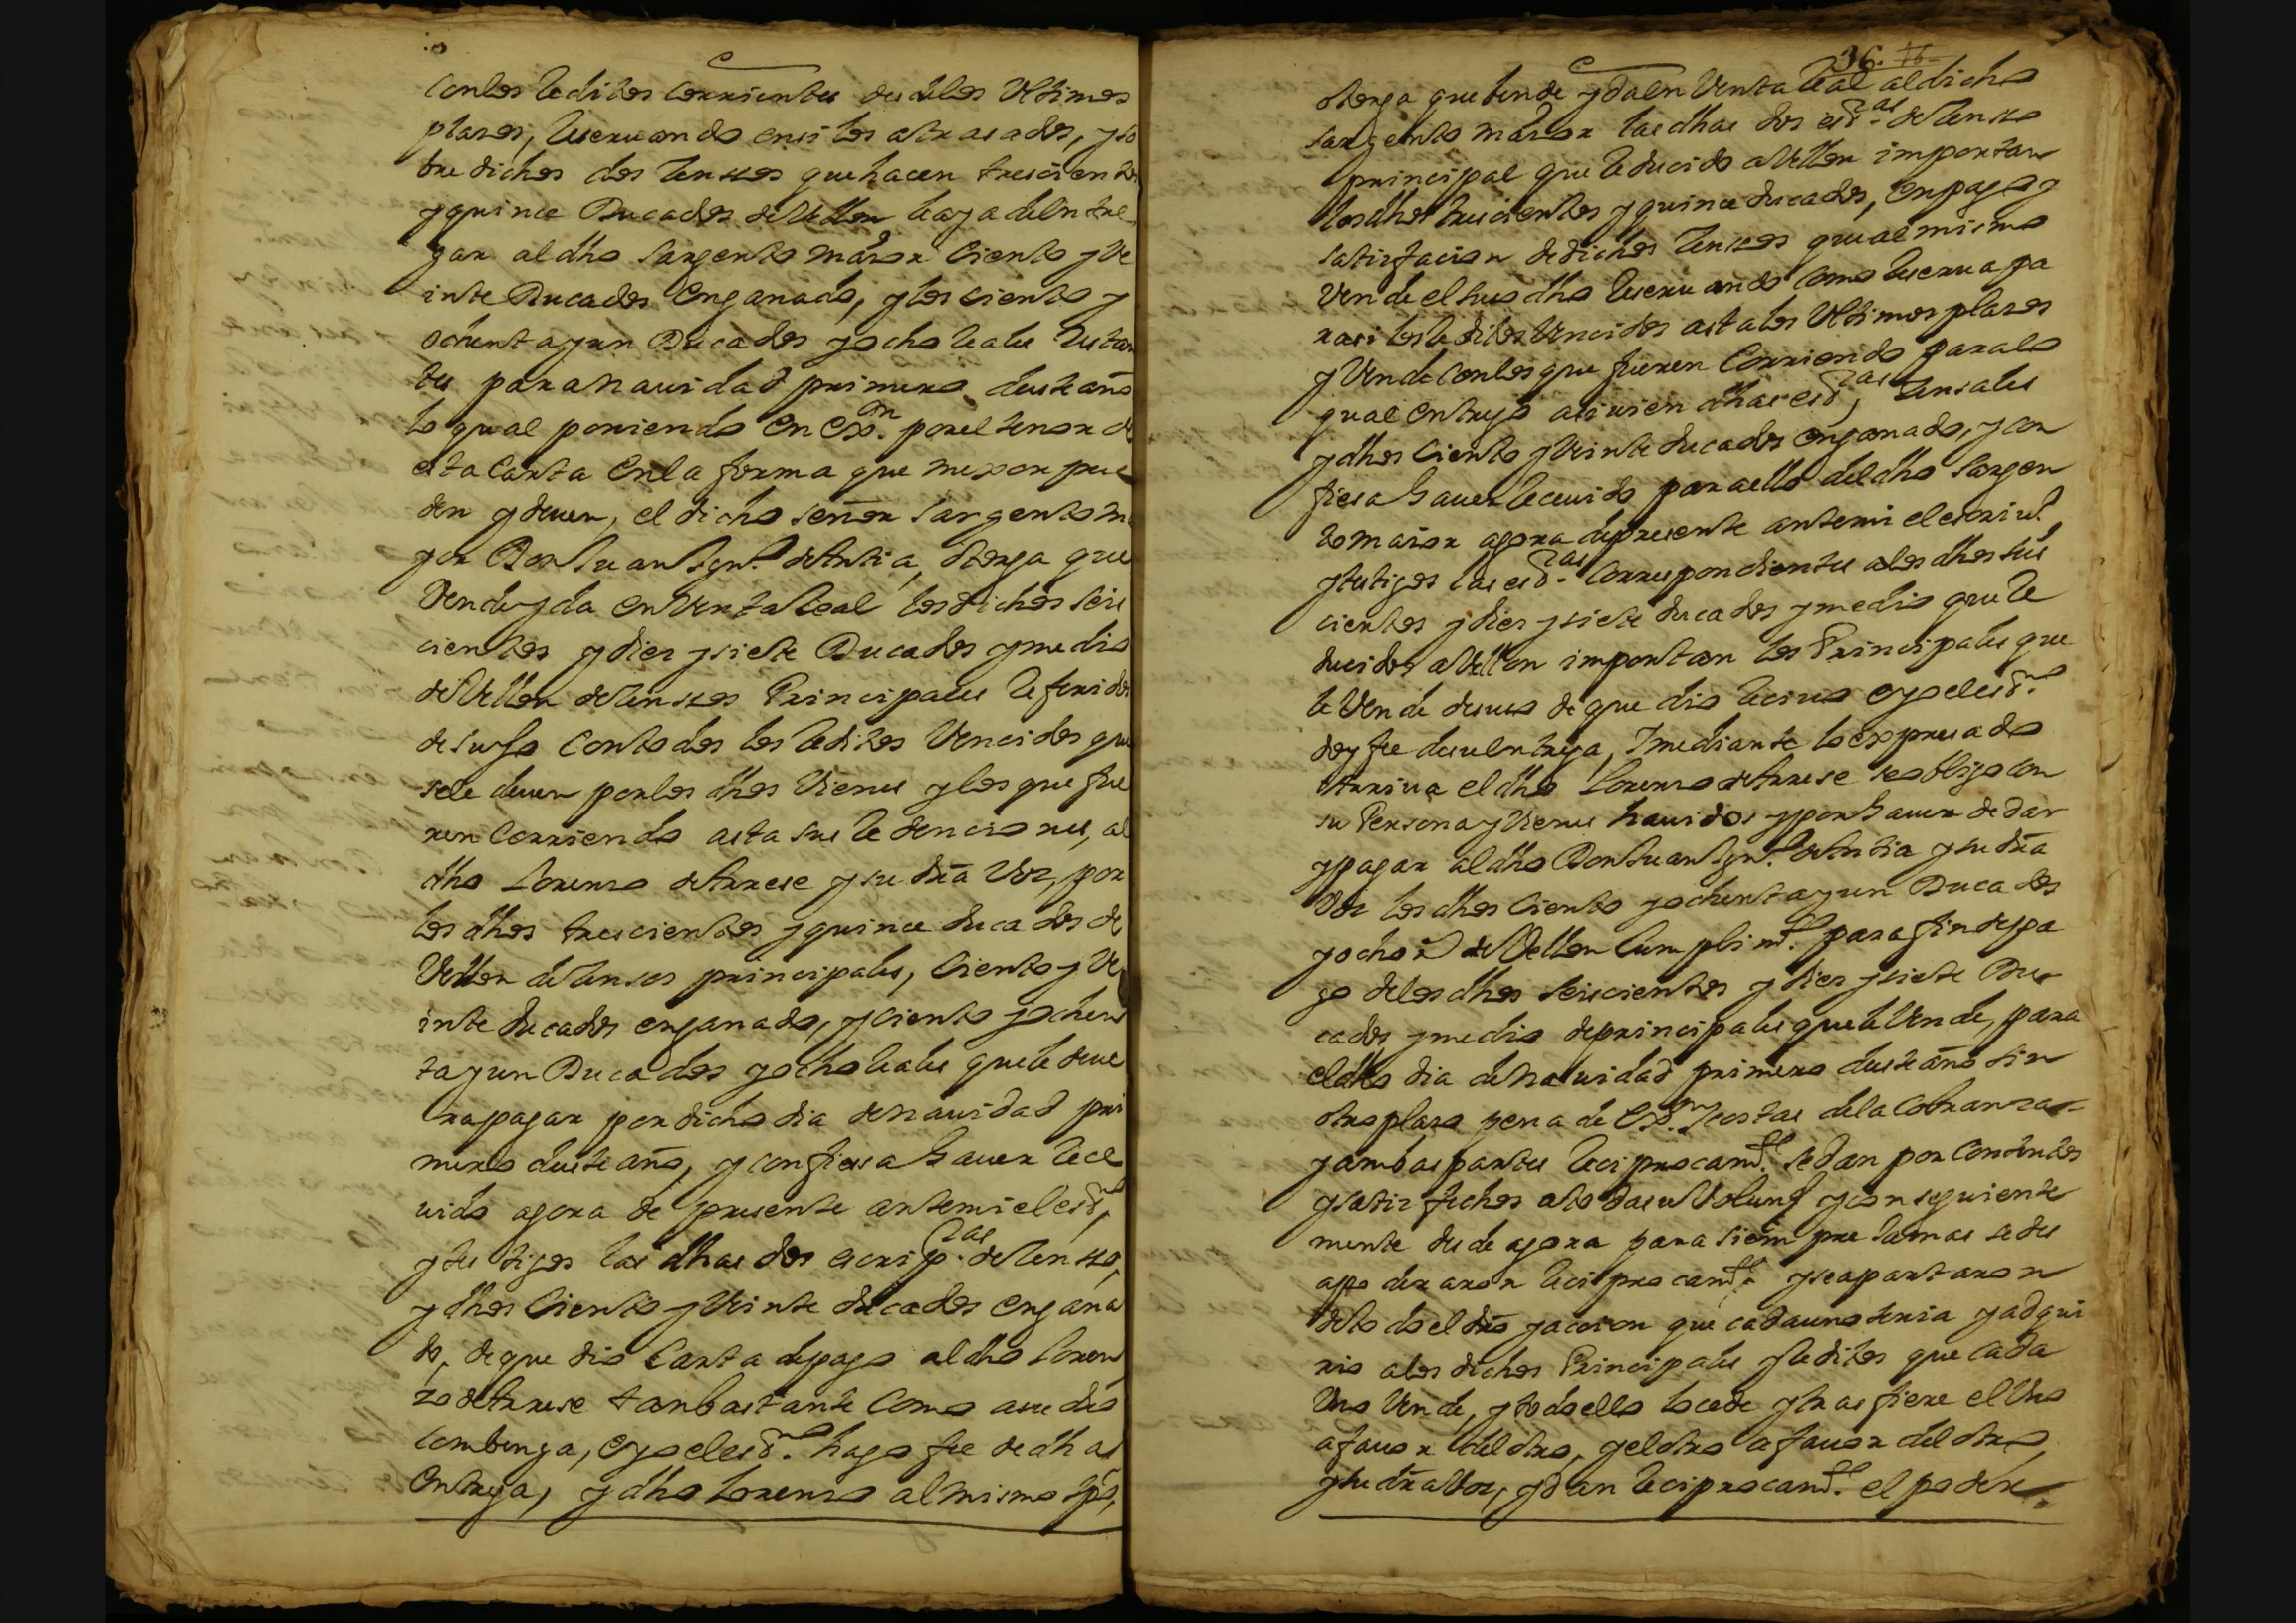 con los reditos corrientes desde los Vltimos
plasos, reseruando en si los atrasados, y so
bre dichos dos censsos que hacen trescientos
y quince Ducados de Vellon le aya de entre
gar al dho sargento maior Ciento y Ve
inte Ducados en ganado, y los ciento y
ochenta y un Ducados y ocho reales restan
tes para nauidad primero deste año
lo qual poniendo en exon. por el tenor de
esta Carta en la forma que mexor pue
den y deuen, el dicho señor sargento ma
yor Don Juan Ygn.o de Antia, otorga que
Vende y da en Venta Real los dichos seis
cientos y dies y siete Ducados y medio
de Vellon de censsos Principales referidos
de suso con todos los reditos Vencidos que
se le deuen por los dhos Vienes y los que fue
ren corriendo asta sus redenciones, al
dho Lorenso de Arrese y su dra Voz, por
los dhos trescientos y quince ducados de
Vellon de censos principales, Ciento y Ve
inte ducados en ganado, y ciento y ochen
ta y un Ducados y ocho reales que le deue
ra pagar por dicho dia de nauidad pri
mero deste año, y confiesa hauer rece
uido agora de presente ante mi el essno,
y testigos las dhas dos escripras. de censso,
y dhos Ciento y Veinte ducados en gana
do, de que dio Carta de pago al dho Loren
zo de Arrese tan bastante como a su dro
combenga, e yo el essno. hago fee de dhas
Entrega, y dho Lorenso al mismo tpo,
36. 16
otorga que bende y da en Venta real al dicho
sargento maior las dhas dos essras. de censso
principal que reducido a Vellon importan
los dhos trescientos y quince ducados, en pago y
satisfacion de dichos censsos que al mismo
Vende el suso dho reseruando como reserua pa
ra si los reditos Vencidos asta los Vltimos plasos
y Vende con los que fueren Corriendo para lo
qual entrego assi vien dhas essras, censales
y dhos Ciento y Veinte ducados en ganado, y con
fiesa hauer receuido para ello del dho sargen
to maior agora de presente ante mi el escriu.o
y testigos las essras. correspondientes a los dhos seis
cientos y dies y siete ducados y medio que re
ducidos a Vellon importan los Principales que
le Vende desuso de que dio reciuo e yo el essno.
doy fee de su entrega, Y mediante lo expresado
Arriua el dho Lorenso de Arrese se obligo con
su Persona y Vienes hauidos y por hauer de dar
y pagar al dho Don Juan Ygn.o de Antia y su dra
Voz los dhos Ciento y ochenta y un Ducados
y ocho rs de Vellon cumplimto. para fin de pa
go de los dhos seiscientos y dies y siete Du
cados y medio de principales que le Vende, para
el dho dia de Nauidad primero deste año sin
otro plaso pena de exon. y costas de la cobransa
y ambas partes reciprocamte. se dan por Contentos
y satisfechos a toda su Volunt y consiguiente
mente desde agora para siempre Jamas se des
apoderaron reciprocamte. y se apartaron
de todo el dro y accion que cada uno tenia y adqui
rio a los dichos Principales y reditos que cada
Vno Vende, y todo ello lo cede y trasfiere el Vno
a fauor del otro, y el otro a fauor del otro,
y su dra Voz, y dan reciprocamte. el poder